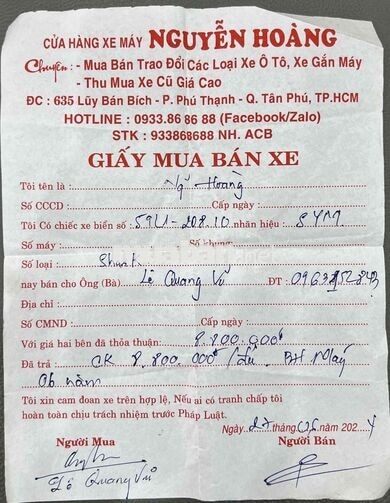 CỬA HÀNG XE MÁY NGUYỄN HOÀNG
Chuyên: - Mua Bán Trao Đổi Các Loại Xe Ô Tô, Xe Gắn Máy
- Thu Mua Xe Cũ Giá Cao
ĐC : 635 Lũy Bán Bích - P. Phú Thạnh - Q. Tân Phú, TP.HCM
HOTLINE : 0933.86 86 88 (Facebook/Zalo)
STK : 933868688 NH. ACB
GIẤY MUA BÁN XE
Tôi tên là : Hoàng
Số CCCD : Cấp ngày :
Tôi Có chiếc xe biển số : 59U1-208.10 nhãn hiệu : SYM
Số máy : Số khung:
Số loại : Shark
nay bán cho Ông (Bà) Lê Quang Vũ ĐT :
Địa chỉ :
Số CMND : Cấp ngày :
Với giá hai bên đã thỏa thuận: 8.800.000đ
Đã trả : CK 8.800.000đ BH Máy
06 năm
Tôi xin cam đoan xe trên hợp lệ, Nếu ai có tranh chấp tôi
hoàn toàn chịu trách nhiệm trước Pháp Luật.
Ngày 27 tháng 06 năm 2024
Người Mua Người Bán
Lê Quang Vũ